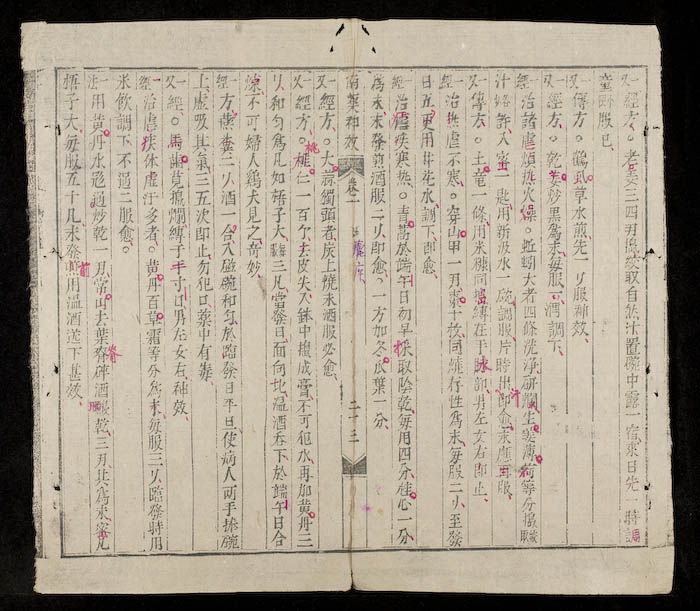 又經方。老姜三四刄搗絞取自然汁置碗中露一宿來日先一時調
童便服已
又傳方。鶴虱草水煎先一刄服神效、
又經方。乾姜炒黑為末每服一刄酒調下、
經治諸瘧煩熱火燥。蚯蚓大者四條洗淨研爛生姜薄荷等分搗取
汁將許入蜜一匙用新汲水一碗調服片時出汗即愈未應再服、
又傳方。土竜一條用米糠同搗縛在手脉部男左女右即止、
經治熱瘧不寒。穿山甲一刄棗十枚同燒存性為末每服二刄至發
日五更用井花水調下即愈
經治瘧疾寒熱。青蒿於端午日初早採取陰乾每用四分桂心一分
為末未發前酒服二刄即愈。一方加冬瓜葉一分
南藥神效 卷一 二十三
又經方。大蒜獨頭者炭上燒末酒服必愈
又經方。桃仁一百个去皮尖入鉢中擂成膏不可犯水再加黃丹三
刄和勻為凡如梧子大每三凡當發日面向北溫酒吞下於端午日合
煉不可婦人鷄犬見之奇妙、
經方燕糞二刄酒一合入磁碗和勻於臨發日平旦使病人兩手捧碗
上虛吸其氣三五次即止勿犯口藥中有毒、
又經。馬齒莧搗爛縛于手寸口男左女右神效、
經治瘧疾体虛汗多者。黃丹百草霜等分為末每服三刄臨發時用
米飲調下不過二服愈。
法一用黃丹水飛過炒乾一刄常山去葉薺碎酒曬乾三刄共為末蜜凡
梧子大每服五十凡未發前用溫酒送下甚效、